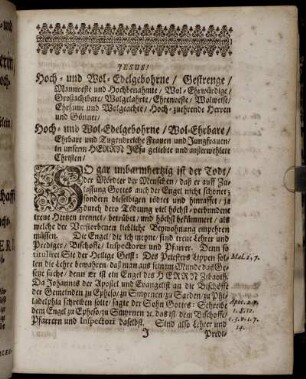 JESUS!
Hoch- und Wol-Edelgebohrne / Gestrenge /
Mannveste und Hochbenahmte / Wol-Ehrwürdige /
Großachtbare / Wolgelahrte / Ehrenveste / Wolweise /
Ehrsame und Wolgeachte / Hoch-zuehrende Herren
und Gönner /
Hoch- und Wol-Edelgebohrne / Wol-Ehrbare /
Ehrbare und Tugendreiche Frauen und Jungfrauen /
in unserm HERRN JEsu geliebte und auserwehlete
Christen /
SO gar unbarmhertzig ist der Todt /
der Mörder der Menschen / daß er auff Zu-
lassung Gottes auch der Engel nicht schonet /
sondern dieselbigen tödtet und hinrafft / ja
durch dero Tödtung viel höchst-verbundene
treue Hertzen trennet / betrübet / und höchst bekümmert / als
welche der Verstorbenen liebliche Beywohnung empehren
müssen. Die Engel / die ich meyne / sind treue Lehrer und
Prediger / Bischoffe / Inspectores und Pfarrer. Denn so
tituliret Sie der Heilige Geist: Des Priesters Lippen sol-
len die Lehre bewahren / daß man aus seinem Munde das Ge-
setze suche / denn er ist ein Engel des HERRN Zebaoth.
Da Johannes der Apostel und Evangelist an die Bischoffe
der Gemeinden zu Epheso / zu Smyrnen / zu Sarden / zu Phi-
ladelphia schreiben solte / sagte der Sohn Gottes: Schreibe
dem Engel zu Epheso / zu Smyrnen ꝛc. das ist / dem Bischoffe /
Pfarrern und Inspectori daselbst. Sind also Lehrer und
J
Predi-
Mal. 2. 7.